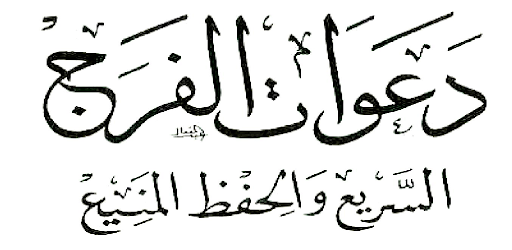 دَعَوَاتُ الفَرَجِ
السَّرِيعِ وَالحِفْظِ المَنِيعِ